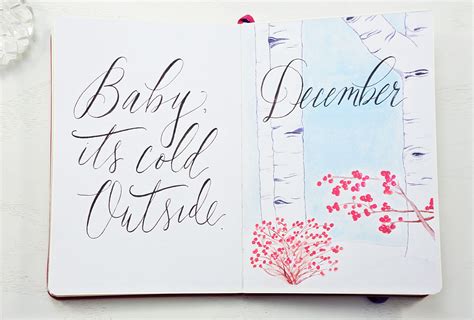 Baby,
its cold
Outside.
December